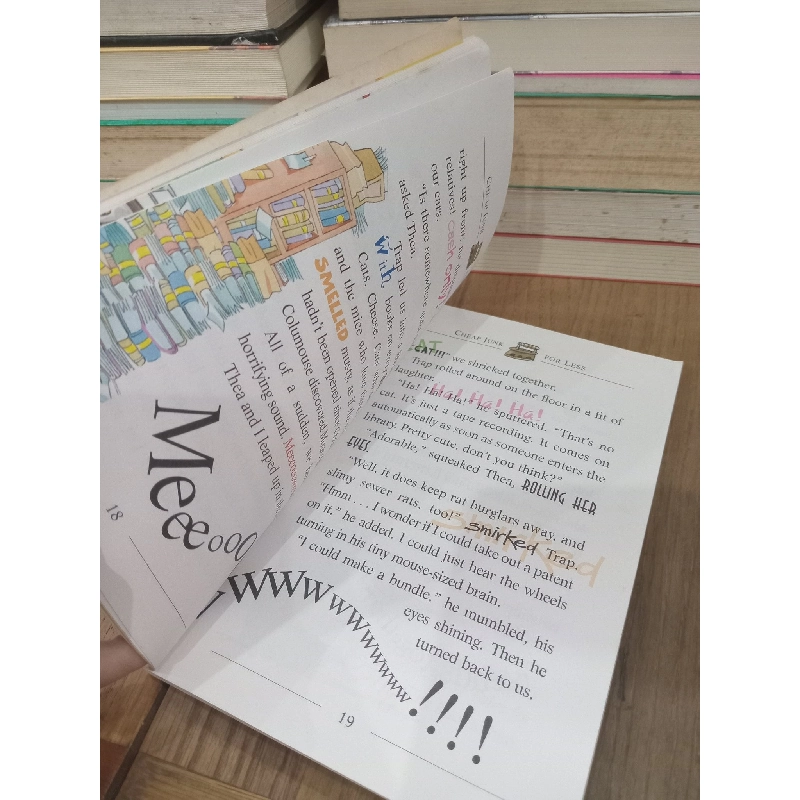 CHEAP JUNK
right up front: the
relatives!
our ears.
"Is there somewhere
asked Thea.
Trap led us
With books on
Cats, Cheese,
and the mice who
SMELLED musty, as
hadn't been opened since
Columouse discovered
All of a sudden, we
horrifying sound. 
Thea and I leaped up in
Meeeooo
18
CHEAP JUNK FOR LESS
CAT!!!" we shrieked together.
Trap rolled around on the floor in a fit of
laughter.
"Ha! Ha! Ha!" he sputtered. "That's no
cat. It's just a tape recording. It comes on
automatically as soon as someone enters the
library. Pretty cute, don't you think?"
"Adorable," squeaked Thea, ROLLING HER
EYES.
"Well, it does keep rat burglars away, and
slimy sewer rats, too!" smirked Trap.
"Hmm . . . I wonder if I could take out a patent
on it," he added. I could just hear the wheels
turning in his tiny mouse-sized brain.
"I could make a bundle," he mumbled, his
eyes shining. Then he
turned back to us.
wwwwwwwwwww!!!!
19